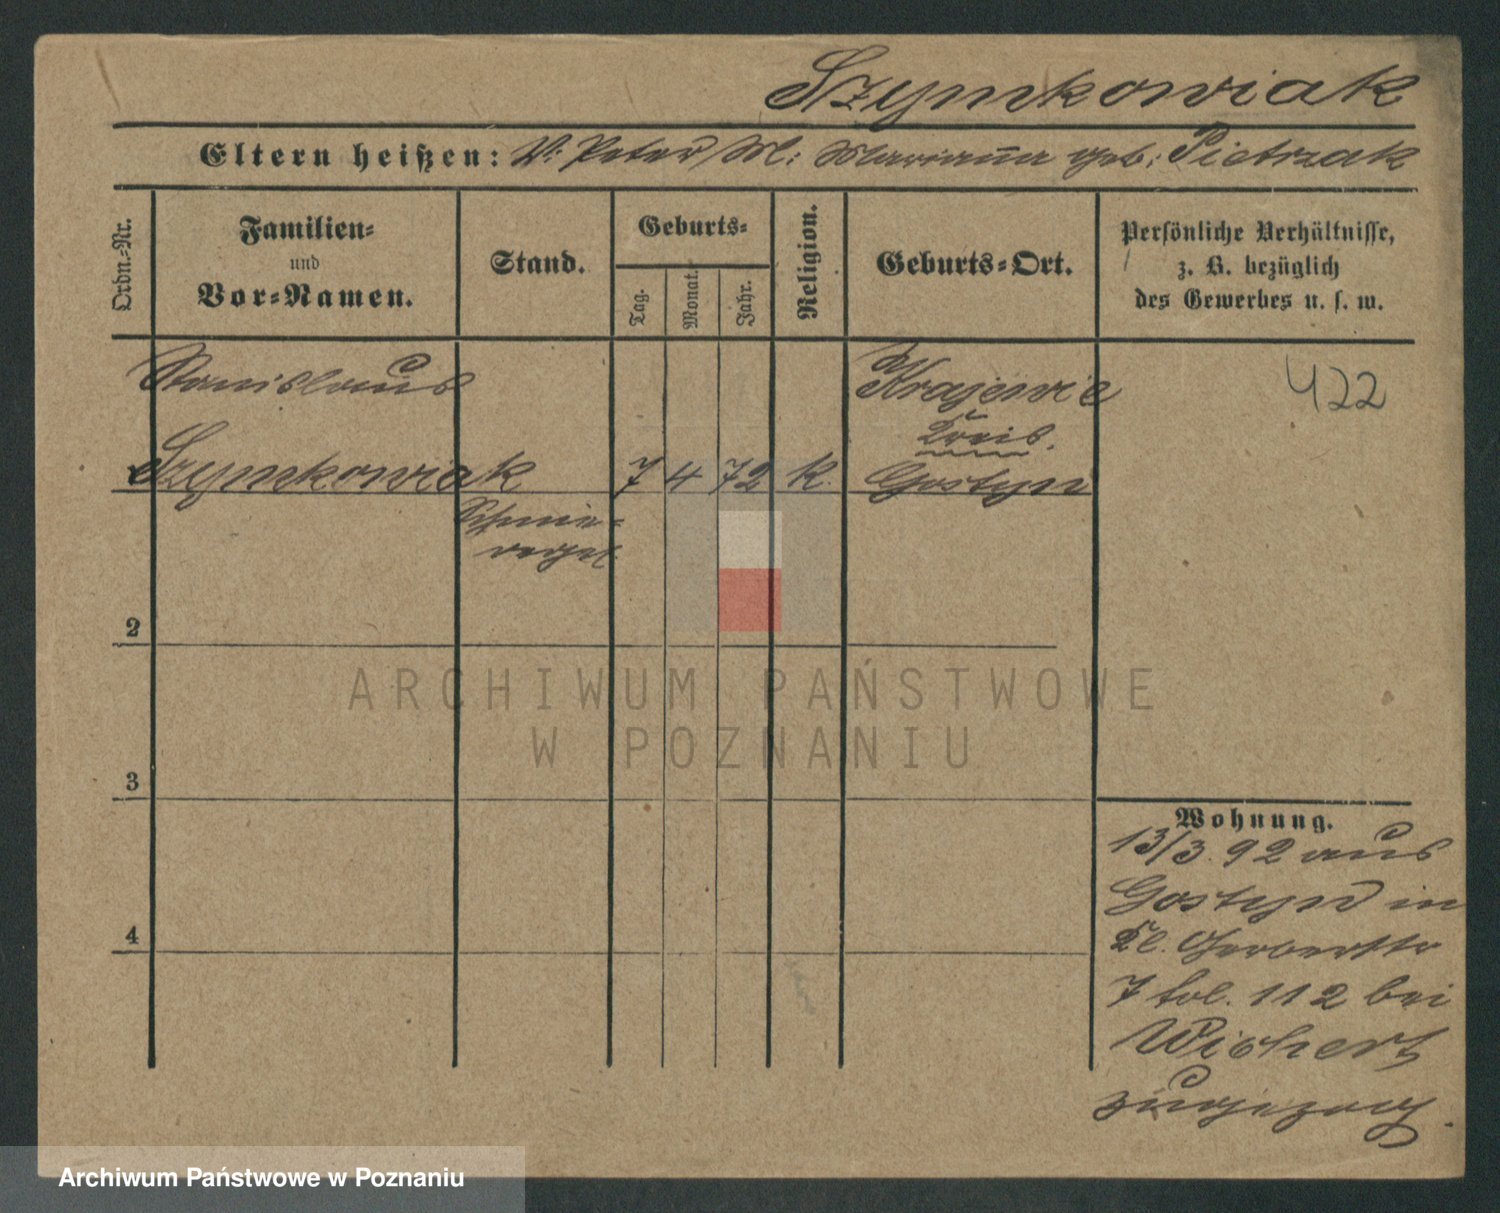 Szymkowiak
Eltern heißen: V: Peter M: Marianna geb: Pietrzak
Ordn.-Nr.
Familien-
und
Vor-Namen.
Stand.
Geburts-
Tag.
Monat.
Jahr.
Religion.
Geburts-Ort.
Persönliche Verhältnisse,
z. B. bezüglich
des Gewerbes u. s. w.
Stanislaus
Krajewic
422
Kreis.
1 Szymkowiak 7 4 72 k. Gostyn
2
3
4
Wohnung.
13/3. 92 aus
Gostyn in
Kl. Gerberstr
7 fol. 112 bei
Wichert
zugezog.
ARCHIWUM PAŃSTWOWE
W POZNANIU
Archiwum Państwowe w Poznaniu